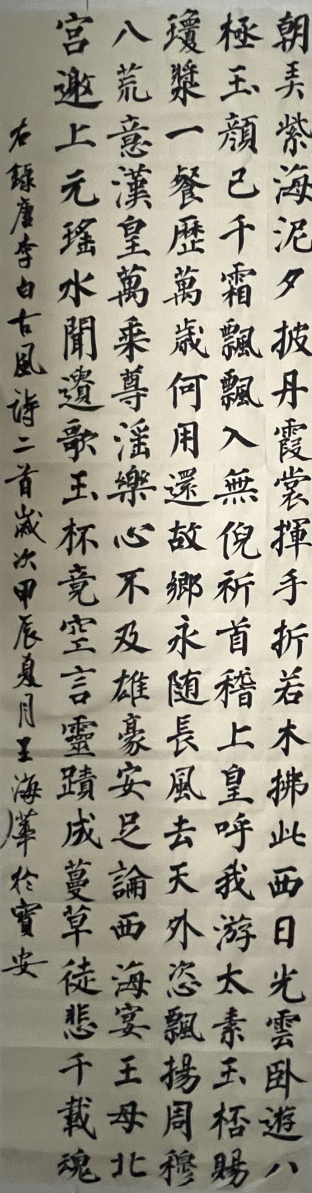 朝弄紫海泥夕披丹霞裳揮手折若木拂此西日光雲卧遊八
極玉顔已千霜飄飄入無倪祈首稽上皇呼我游太素玉杯賜
瓊漿一餐歷萬歲何用還故鄉永随長風去天外恣飄揚周穆
八荒意漢皇萬乘尊滛樂心不及雄豪安足論西海宴王母北
宮邀上元瑤水聞遺歌玉杯竟空言靈蹟成蔓草徒悲千載魂
右錄唐李白古風詩二首歲次甲辰夏月王海華於寶安